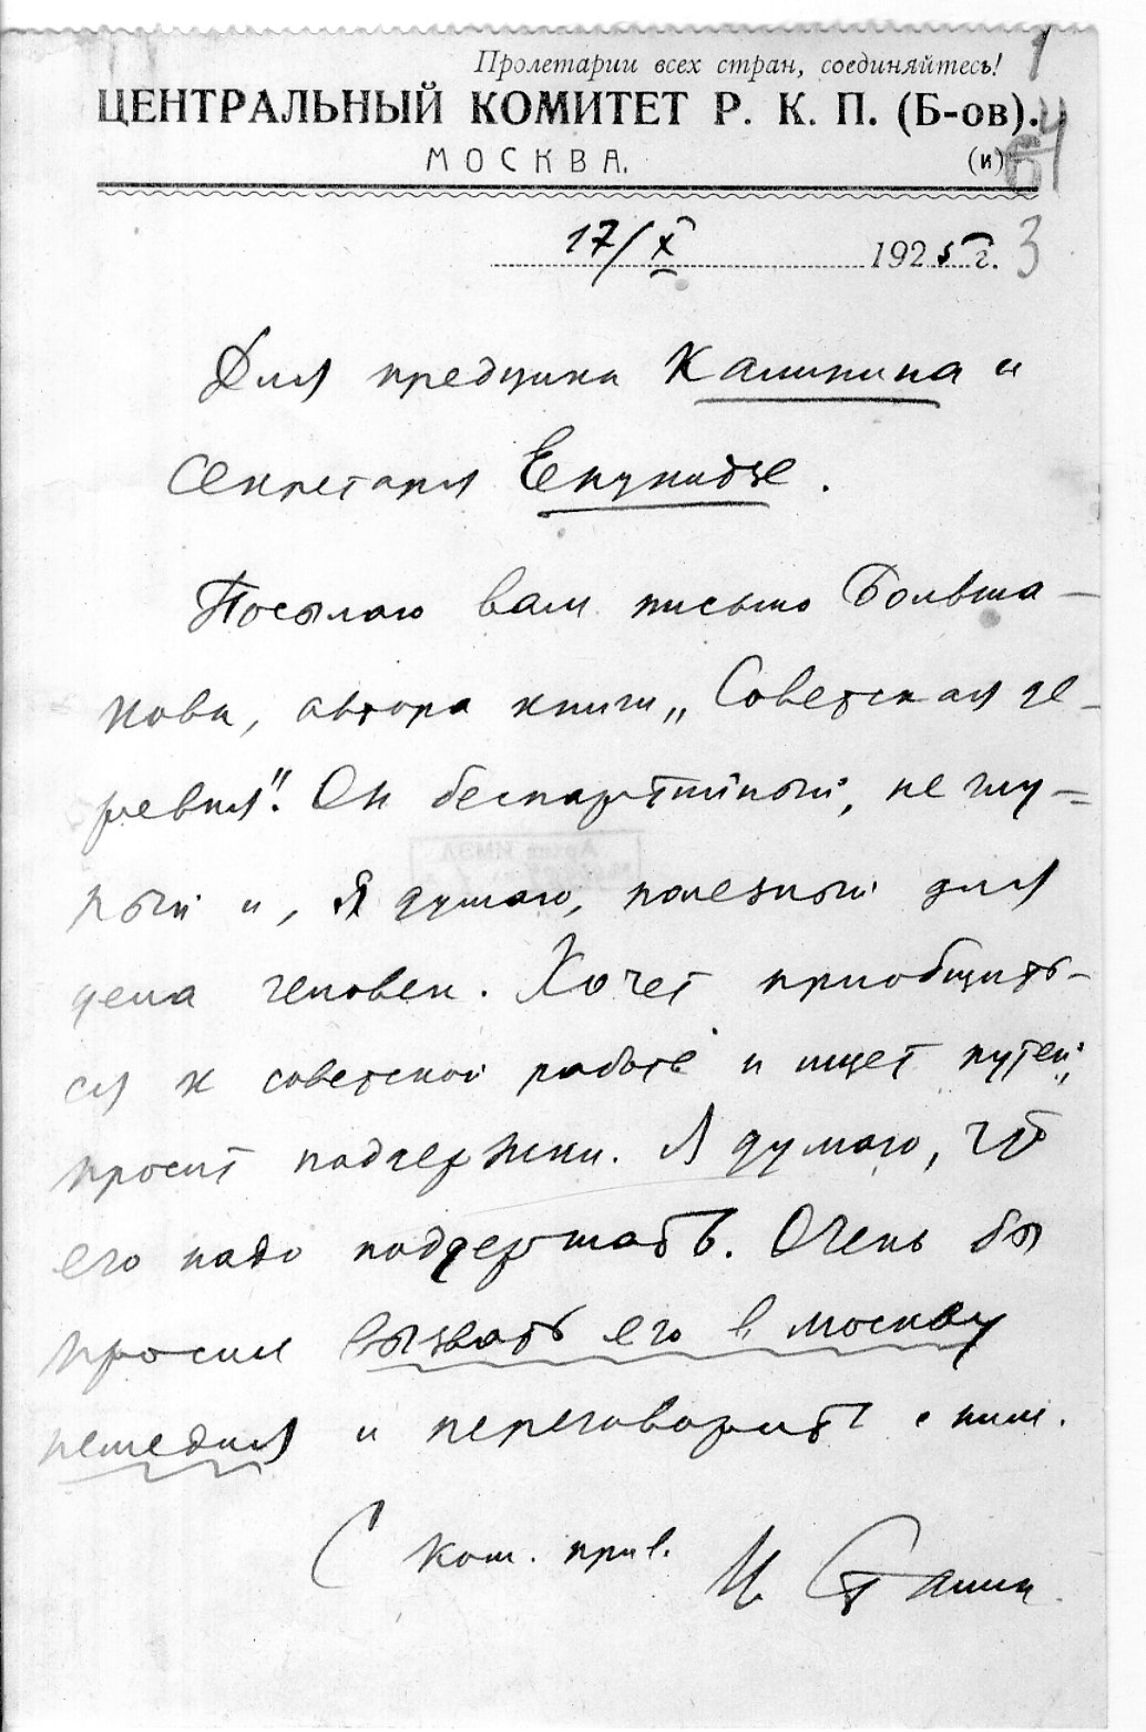 Пролетарии всех стран, соединяйтесь!
1
ЦЕНТРАЛЬНЫЙ КОМИТЕТ Р. К. П. (Б-ов).
МОСКВА.
(и)
17/X 1925 г.
3
Для предцика Калинина и
секретаря Енукидзе.
Посылаю вам письмо Больша-
кова, автора книги „Советская де-
ревня". Он беспартийный, не глу-
пый и, я думаю, полезный для
дела человек. Хочет приобщить-
ся к советской работе и ищет путей,
просит поддержки. Я думаю, что
его надо поддержать. Очень бы
просил вызвать его в Москву
немедля и переговорить с ним.
С ком. прив. И Сталин.